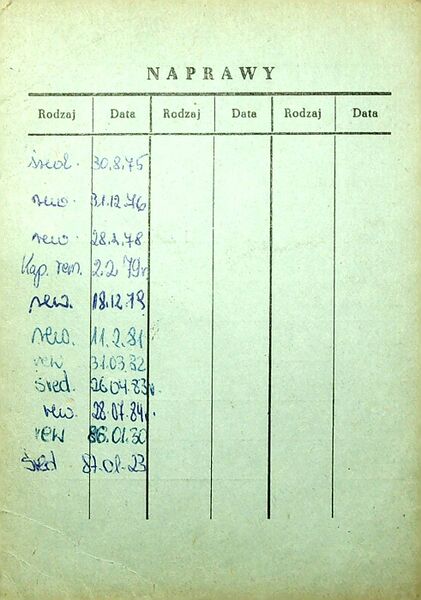 NAPRAWY
Rodzaj Data Rodzaj Data Rodzaj Data
śred. 30.8.75
rew. 31.12.76
rew. 28.2.78
Kap. rem. 2.2 79r.
rew. 18.12.79
rew. 11.2.81
rew 31.03.82
śred. 26.04.83r.
rew. 28.07.84r.
rew 86.01.30
śred 87.01.23